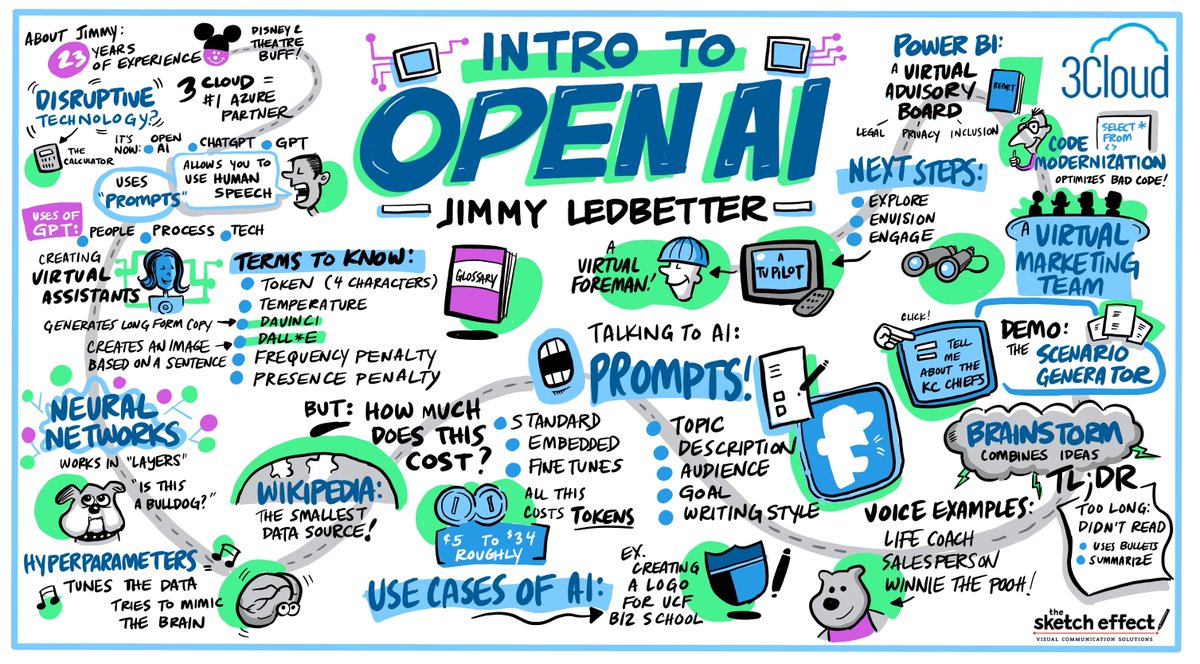 ABOUT JIMMY:
23 YEARS
OF EXPERIENCE
DISNEY &
THEATRE
BUFF!
3 CLOUD =
#1 AZURE
PARTNER
"DISRUPTIVE
TECHNOLOGY?"
THE
CALCULATOR
IT'S
NOW:
OPEN
AI
CHATGPT
GPT
USES
"PROMPTS"
ALLOWS YOU TO
USE HUMAN
SPEECH
USES OF
GPT:
PEOPLE
PROCESS
TECH
CREATING
VIRTUAL
ASSISTANTS
TERMS TO KNOW:
TOKEN (4 CHARACTERS)
TEMPERATURE
GENERATES LONG FORM COPY
DAVINCI
CREATES AN IMAGE
BASED ON A SENTENCE
DALL*E
FREQUENCY PENALTY
PRESENCE PENALTY
GLOSSARY
NEURAL
NETWORKS
WORKS IN "LAYERS"
"IS THIS
A BULLDOG?"
HYPERPARAMETERS
TUNES THE DATA
TRIES TO MIMIC
THE BRAIN
INTRO TO
OPEN AI
JIMMY LEDBETTER
WIKIPEDIA:
THE SMALLEST
DATA SOURCE!
BUT: HOW MUCH
DOES THIS
COST?
STANDARD
EMBEDDED
FINE TUNES
ALL THIS
COSTS TOKENS
$5 TO $34
ROUGHLY
USE CASES OF AI:
EX.
CREATING
A LOGO
FOR UCF
BIZ SCHOOL
TALKING TO AI:
PROMPTS!
TOPIC
DESCRIPTION
AUDIENCE
GOAL
WRITING STYLE
VOICE EXAMPLES:
LIFE COACH
SALESPERSON
WINNIE THE POOH!
BRAINSTORM
COMBINES IDEAS
TL;DR
TOO LONG:
DIDN'T READ
USES BULLETS
SUMMARIZE
DEMO:
THE SCENARIO
GENERATOR
CLICK!
TELL
ME
ABOUT THE
KC CHIEFS
A VIRTUAL
MARKETING
TEAM
CODE
MODERNIZATION
OPTIMIZES BAD CODE!
SELECT *
FROM
<>
POWER BI:
A VIRTUAL
ADVISORY
BOARD
REPORT
LEGAL PRIVACY INCLUSION
3Cloud
NEXT STEPS:
EXPLORE
ENVISION
ENGAGE
A
TV PILOT
A
VIRTUAL
FOREMAN!
the
sketch effect
VISUAL COMMUNICATION SOLUTIONS